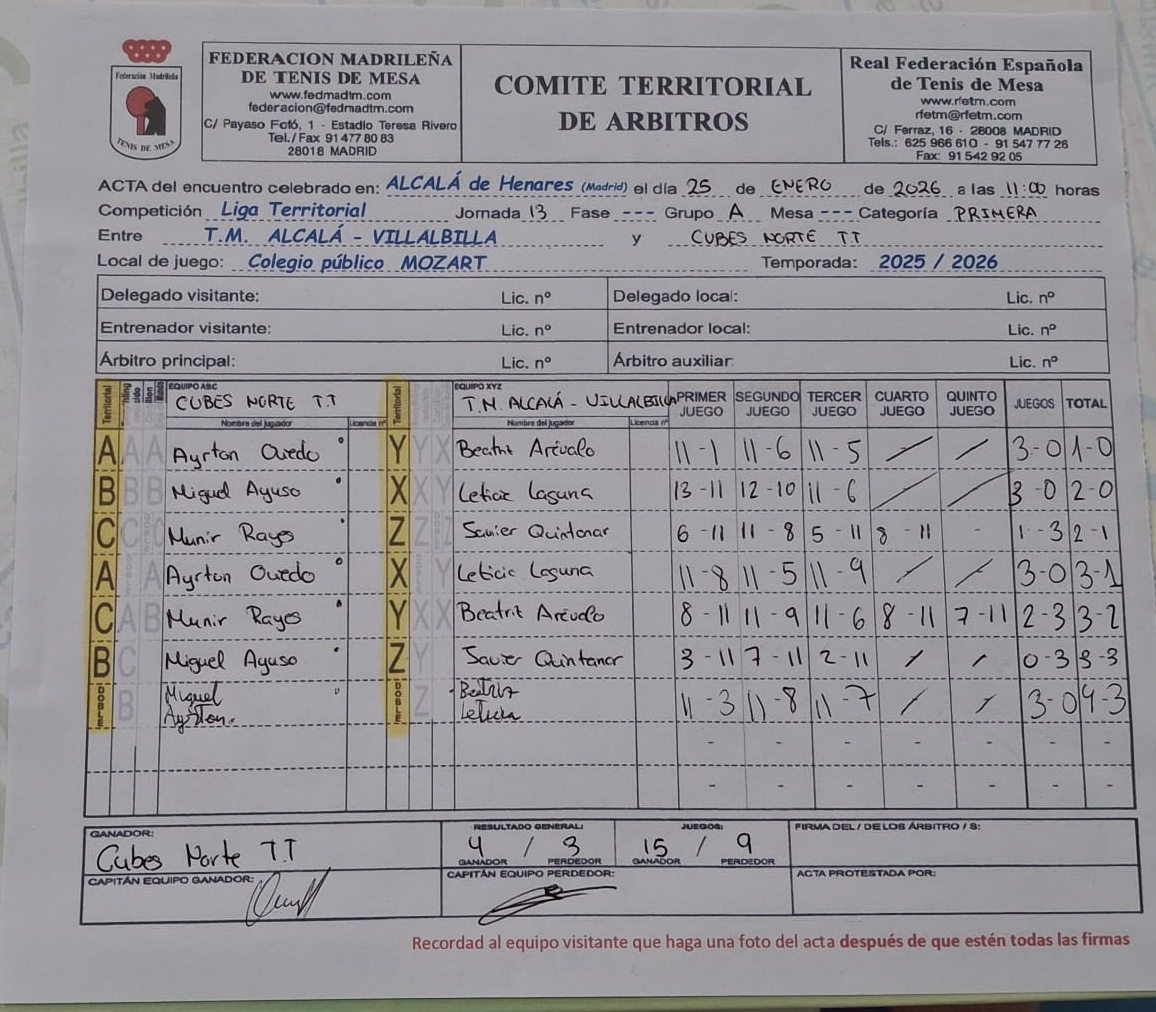 Federación Madrileña
TENIS DE MESA
FEDERACION MADRILEÑA
DE TENIS DE MESA
www.fedmadtm.com
federacion@fedmadtm.com
C/ Payaso Fofó, 1 - Estadio Teresa Rivero
Tel./Fax 91 477 80 83
28018 MADRID
COMITE TERRITORIAL
DE ARBITROS
Real Federación Española
de Tenis de Mesa
www.rfetm.com
rfetm@rfetm.com
C/ Ferraz, 16 - 28008 MADRID
Tels.: 625 966 610 - 91 547 77 26
Fax: 91 542 92 05
ACTA del encuentro celebrado en: ALCALÁ de Henares (Madrid) el día 25 de ENERO de 2026 a las 11:00 horas
Competición Liga Territorial Jornada 13 Fase --- Grupo A Mesa --- Categoría PRIMERA
Entre T.M. ALCALÁ - VILLALBILLA y CUBES NORTE TT
Local de juego: Colegio público MOZART Temporada: 2025 / 2026
Delegado visitante: Lic. nº Delegado local: Lic. nº
Entrenador visitante: Lic. nº Entrenador local: Lic. nº
Árbitro principal: Lic. nº Árbitro auxiliar: Lic. nº
Territorial EQUIPO ABC CUBES NORTE T.T Territorial EQUIPO XYZ T.M. ALCALÁ - VILLALBILLA PRIMER JUEGO SEGUNDO JUEGO TERCER JUEGO CUARTO JUEGO QUINTO JUEGO JUEGOS TOTAL
Nombre del jugador Licencia nº Nombre del jugador Licencia nº
A A A Ayrton Ovedo Y Y X Beatriz Arévalo 11-1 11-6 11-5 / / 3-0 1-0
B B B Miguel Ayuso X X Y Leticia Laguna 13-11 12-10 11-6 / / 3-0 2-0
C C Munir Rayes Z Z Javier Quintanar 6-11 11-8 5-11 8-11 - 1-3 2-1
A A Ayrton Ovedo X Y Leticia Laguna 11-8 11-5 11-9 / / 3-0 3-1
C A B Munir Rayes Y X X Beatriz Arévalo 8-11 11-9 11-6 8-11 7-11 2-3 3-2
B C Miguel Ayuso Z Y Javier Quintanar 3-11 7-11 2-11 / / 0-3 3-3
DOBLE B Miguel Ayrton. DOBLE Z Beatriz Leticia 11-3 11-8 11-7 / / 3-0 4-3
- - - - - - -
- - - - - - -
GANADOR: Cubes Norte T.T
RESULTADO GENERAL: 4 / 3
GANADOR PERDEDOR
JUEGOS: 15 / 9
GANADOR PERDEDOR
FIRMA DEL / DE LOS ÁRBITRO / S:
CAPITÁN EQUIPO GANADOR:
CAPITÁN EQUIPO PERDEDOR:
ACTA PROTESTADA POR:
Recordad al equipo visitante que haga una foto del acta después de que estén todas las firmas